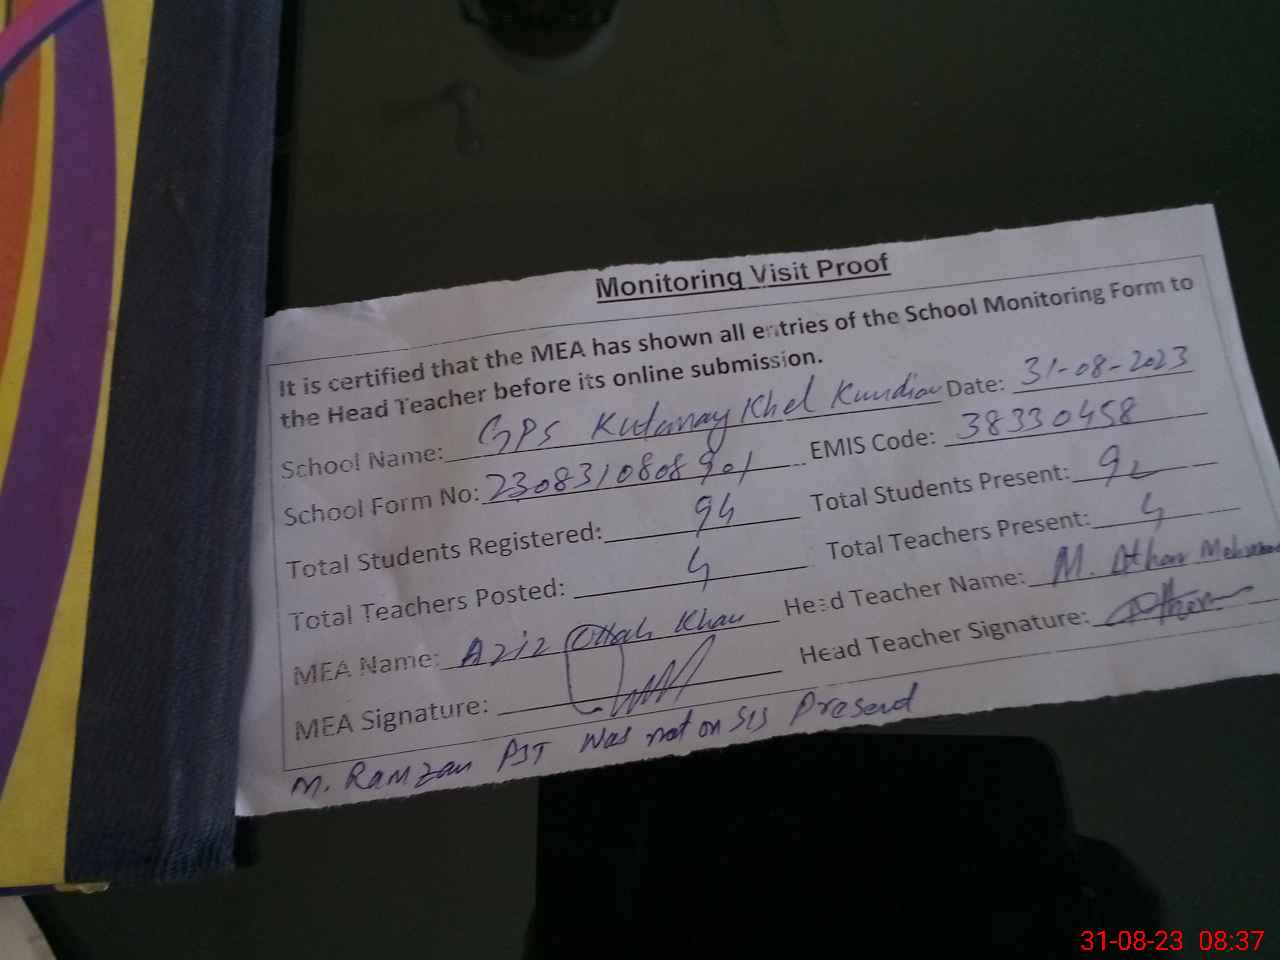 Monitoring Visit Proof
It is certified that the MEA has shown all entries of the School Monitoring Form to
the Head Teacher before its online submission.
School Name: GPS Kutanay Khel Kundian Date: 31-08-2023
School Form No: 2308310808901 EMIS Code: 38330458
Total Students Registered: 94 Total Students Present: 92
Total Teachers Posted: 4 Total Teachers Present: 4
MEA Name: Aziz Ullah Khan Head Teacher Name: M. Athar
MEA Signature: Head Teacher Signature: Athar
M. Ramzan PST was not on SIS Present
31-08-23 08:37